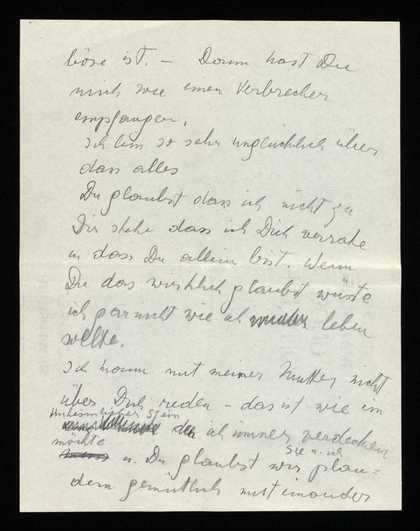 böse ist. – Darum hast Du
mich wie einen Verbrecher
empfangen.
Ich bin so sehr unglücklich über
dass alles
Du glaubst dass ich nicht zu
Dir stehe dass ich Dich verrate
u dass Du allein bist. Wenn
Du das wirklich glaubst wüsste
ich gar nicht wie ich leben
sollte.
Ich kann mit meiner Mutter nicht
über Dich reden – das ist wie ein
unheimlicher Stein
den ich immer verdecken
möchte Sie u. ich
u. Du glaubst wir plau-
dern gemütlich miteinander